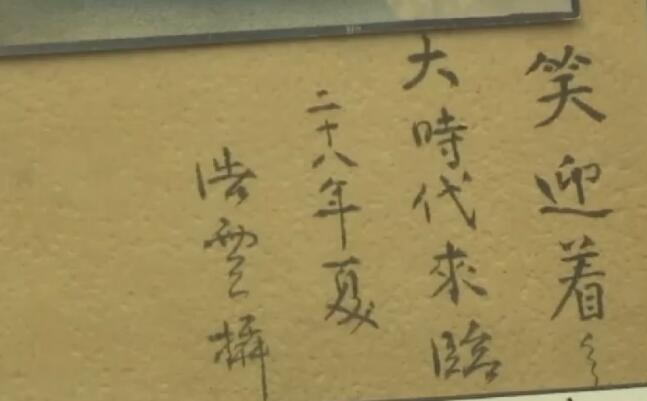 笑迎着
大時代來臨
二十八年夏
浩雲攝